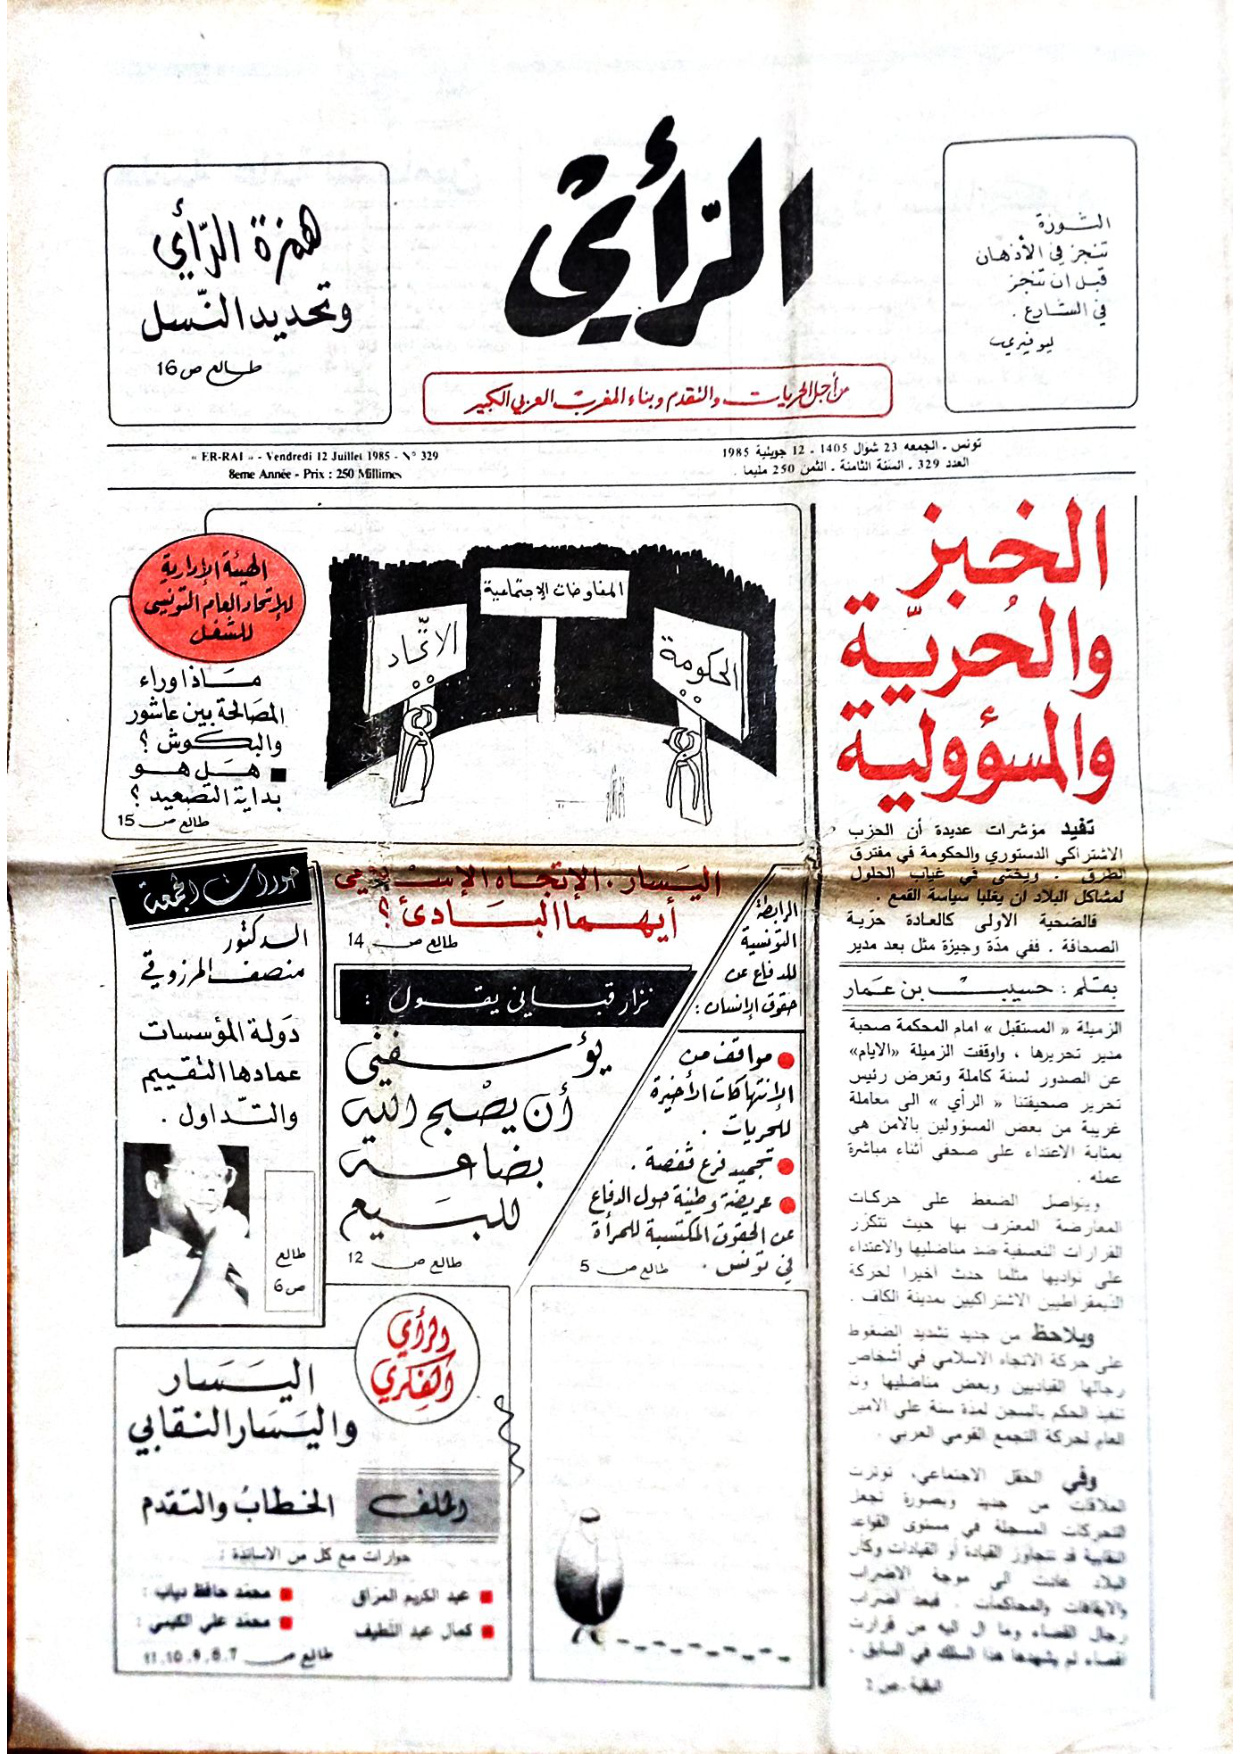 الثورة
تنجز في الأذهان
قبل ان تنجز
في الشارع .
ليو فيري
الرأي
من أجل الحريات والتقدم وبناء المغرب العربي الكبير
همزة الرّأي
وتحديد النّسل
طالع ص 16
تونس - الجمعه 23 شوال 1405 - 12 جويلية 1985
العدد 329 - السنة الثامنة - الثمن 250 مليما .
« ER-RAI » - Vendredi 12 Juillet 1985 - N° 329
8eme Année - Prix : 250 Millimes
الخبز
والحُريّة
والمسؤولية
تفيد مؤشرات عديدة أن الحزب
الاشتراكي الدستوري والحكومة في مفترق
الطرق . ويخشى في غياب الحلول
لمشاكل البلاد ان يغلبا سياسة القمع .
فالضحية الاولى كالعادة حرّية
الصحافة . ففي مدّة وجيزة مثل بعد مدير
بقلم : حسيب بن عمار
الزميلة « المستقبل » امام المحكمة صحبة
مدير تحريرها ، واوقفت الزميلة «الايام»
عن الصدور لسنة كاملة وتعرض رئيس
تحرير صحيفتنا « الرأي » الى معاملة
غريبة من بعض المسؤولين بالأمن هي
بمثابة الاعتداء على صحفي أثناء مباشرة
عمله .
ويتواصل الضغط على حركات
المعارضة المعترف بها حيث تتكرّر
القرارات التعسفية ضد مناضليها والاعتداء
على نواديها مثلما حدث أخيرا لحركة
الديمقراطيين الاشتراكيين بمدينة الكاف .
ويلاحظ من جديد تشديد الضغوط
على حركة الاتجاه الاسلامي في أشخاص
رجالها القياديين وبعض مناضليها وتم
تنفيذ الحكم بالسجن لمدة سنة على الامين
العام لحركة التجمع القومي العربي .
وفي الحقل الاجتماعي، توترت
العلاقات من جديد وبصورة تجعل
التحركات المسجلة في مستوى القواعد
النقابية قد تتجاوز القيادة أو القيادات وكأن
البلاد عادت الى موجة الاضراب
والايقافات والمحاكمات . فبعد اضراب
رجال القضاء وما ال اليه من قرارات
اقصاء لم يشهدها هذا السلك في السابق .
البقية ص 2
المفاوضات الاجتماعية
الاتّحاد
الحكومة
الهيئة الإدارية
للإتحاد العام التونسي
للشغل
مـاذا وراء
المصالحة بين عاشور
والبكوش ؟
■ هل هو
بداية التصعيد ؟
طالع ص 15
اليسار . الإتجاه الإسلامي
أيهما البادئ ؟
طالع ص 14
الرابطة
التونسية
للدفاع عن
حقوق الإنسان :
مواقف من
الإنتهاكات الأخيرة
للحريات .
تجميد فرع قفصة .
عريضة وطنية حول الدفاع
عن الحقوق المكتسبة للمرأة
في تونس . طالع ص 5
نزار قباني يقول :
يؤسفني
أن يصبح الله
بضاعة
للبيع
طالع ص 12
حورات الجمعة
الدكتور
منصف المرزوقي
دولة المؤسسات
عمادها التقييم
والتّداول .
طالع
ص 6
الرأي
الفكري
اليسار
واليسار النقابي
الملف
الخطاب والتقدم
حوارات مع كل من الاساتذة :
■ عبد الكريم المراق
■ محمد حافظ دياب :
■ كمال عبد اللطيف
■ محمد علي الكبسي :
طالع ص 7،8،9،10،11